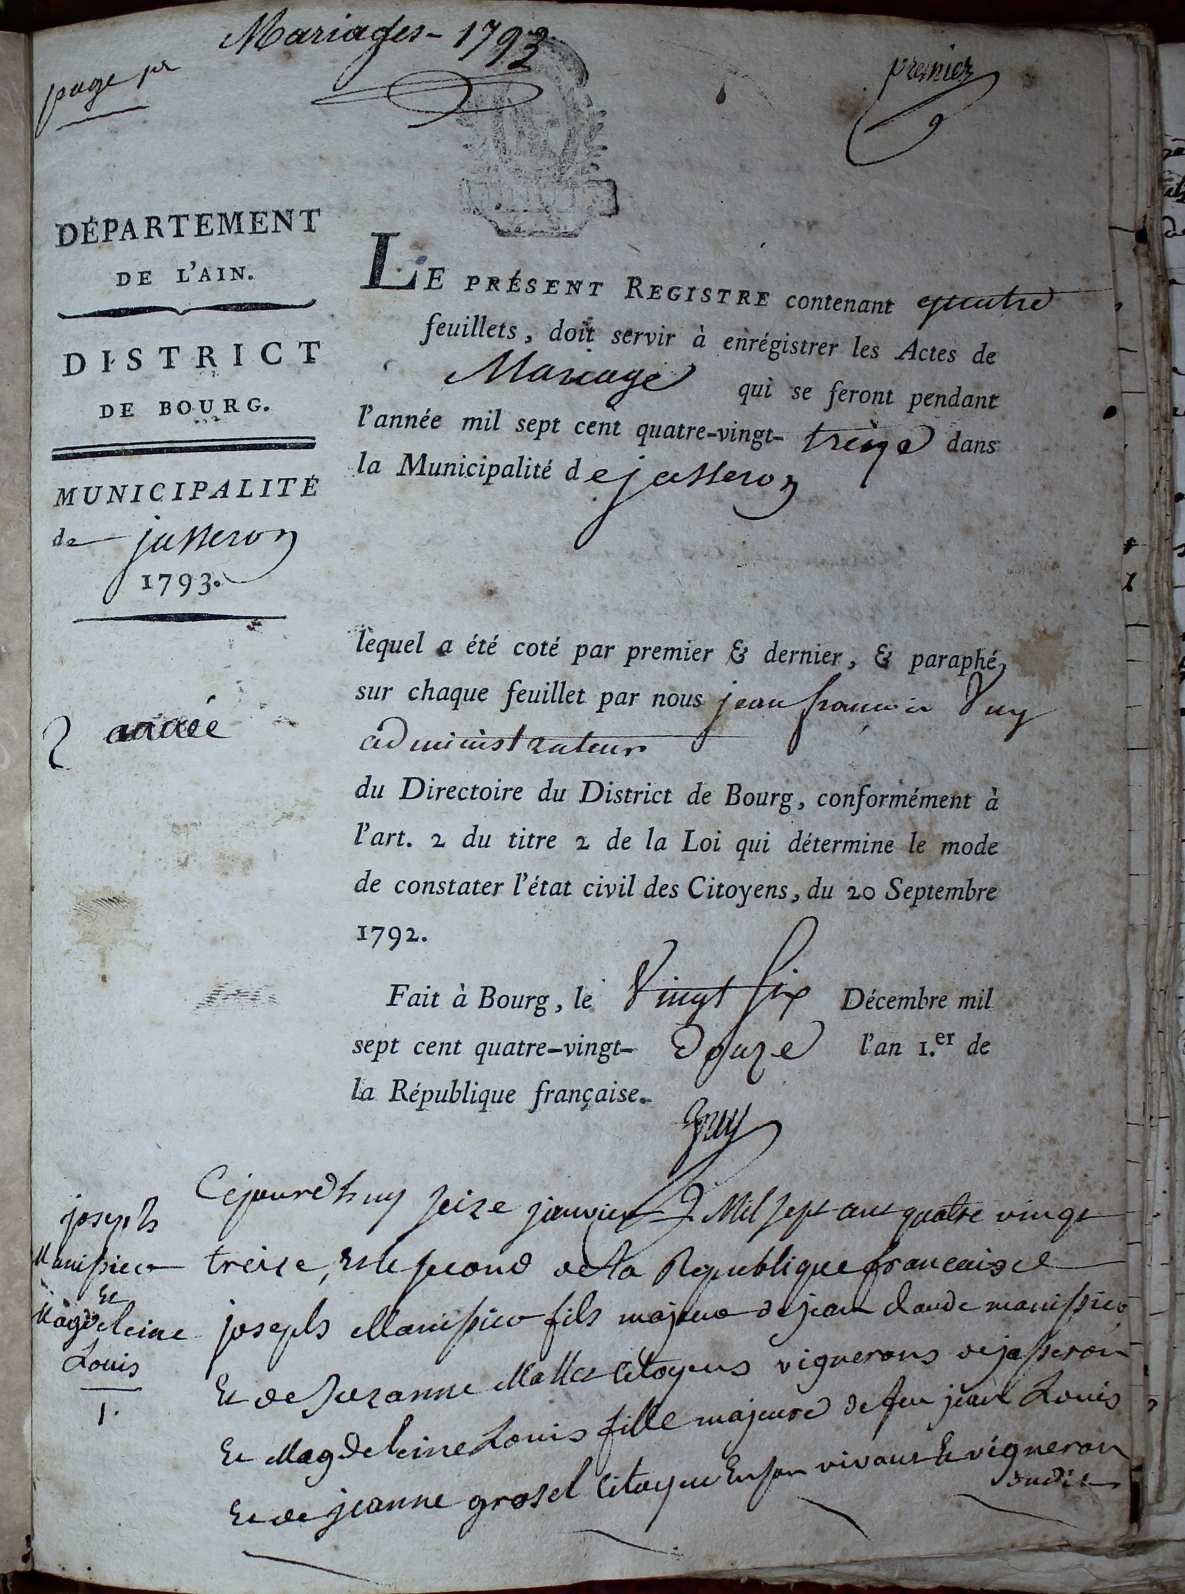 Mariages - 1793
page pr
premier
DÉPARTEMENT
DE L'AIN.
DISTRICT
DE BOURG.
MUNICIPALITÉ
de jasseron
1793.
2 année
LE PRÉSENT REGISTRE contenant quatre
feuillets, doit servir à enrégistrer les Actes de
Mariage qui se feront pendant
l'année mil sept cent quatre-vingt-treize dans
la Municipalité de jasseron
lequel a été coté par premier & dernier, & paraphé
sur chaque feuillet par nous jean francois Vuy
administrateur
du Directoire du District de Bourg, conformément à
l'art. 2 du titre 2 de la Loi qui détermine le mode
de constater l'état civil des Citoyens, du 20 Septembre
1792.
Fait à Bourg, le Vingt six Décembre mil
sept cent quatre-vingt-douze l'an 1.er de
la République française.
Vuy
joseph
Manissieu
Et
Magdeleine
Louis
1.
Cejourd'huy seize janvier Mil sept cent quatre vingt
treize, le second de la Republique francaise
joseph Manissieu fils majeur de jean Claude manissieu
Et de Suzanne citoyens vignerons de jasseron
Et Magdeleine Louis fille majeure de feu jean Louis
Et de jeanne grosel citoyen En son vivant Et vigneron
dudit